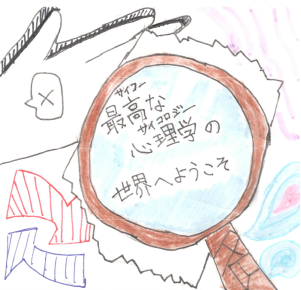 サイコー
最高な
サイコロジー
心理学の
世界へようこそ